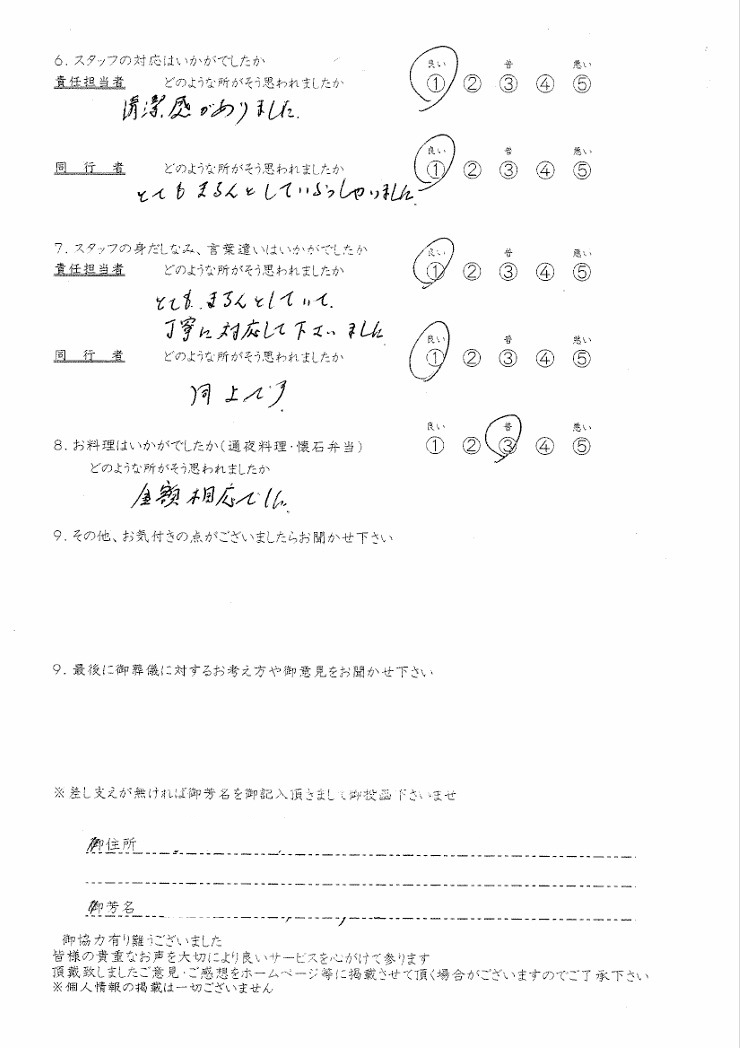 6. スタッフの対応はいかがでしたか
良い 普 悪い
責任担当者 どのような所がそう思われましたか ① ② ③ ④ ⑤
清潔感がありました。
良い 普 悪い
同行者 どのような所がそう思われましたか ① ② ③ ④ ⑤
とても していらっしゃいました
7. スタッフの身だしなみ、言葉遣いはいかがでしたか
良い 普 悪い
責任担当者 どのような所がそう思われましたか ① ② ③ ④ ⑤
とても していて、
丁寧に対応して下さいました
良い 普 悪い
同行者 どのような所がそう思われましたか ① ② ③ ④ ⑤
同上です
良い 普 悪い
8. お料理はいかがでしたか(通夜料理・懐石弁当) ① ② ③ ④ ⑤
どのような所がそう思われましたか
金額相応でした。
9. その他、お気付きの点がございましたらお聞かせ下さい
9. 最後に御葬儀に対するお考え方や御意見をお聞かせ下さい
※差し支えが無ければ御芳名を御記入頂きまして御投函下さいませ
御住所
御芳名
御協力有り難うございました
皆様の貴重なお声を大切により良いサービスを心がけて参ります
頂戴致しましたご意見・ご感想をホームページ等に掲載させて頂く場合がございますのでご了承下さい
※個人情報の掲載は一切ございません